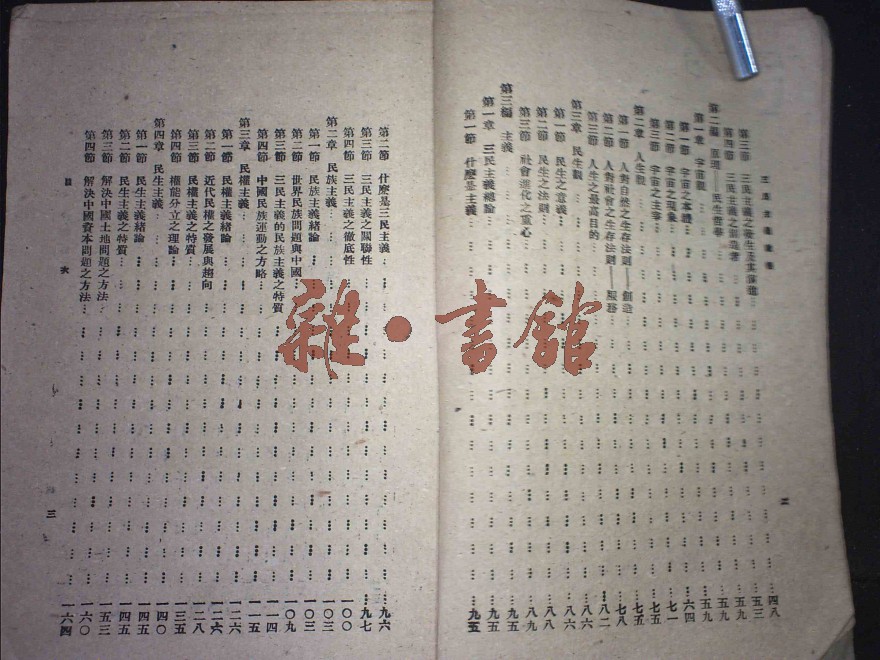 二
第三節 三民主義之產生及其演進……四八
第四節 三民主義之創造者……五三
第二編 原理——民生哲學……五九
第一章 宇宙觀……五九
第一節 宇宙之本體……五九
第二節 宇宙之現象……六四
第三節 宇宙之主宰……七一
第二章 人生觀……七五
第一節 人對自然之生存法則——創造……七五
第二節 人對社會之生存法則——服務……七八
第三節 人生之最高目的……八二
第三章 民生觀……八六
第一節 民生之意義……八六
第二節 民生之法則……八八
第三節 社會進化之重心……八九
第三編 主義……九五
第一章 三民主義總論……九五
第一節 什麼是主義……九五
第二節 什麼是三民主義……九六
第三節 三民主義之關聯性……九七
第四節 三民主義之徹底性……一〇〇
第二章 民族主義……一〇三
第一節 民族主義緒論……一〇三
第二節 世界民族問題與中國……一〇九
第三節 三民主義的民族主義之特質……一一四
第四節 中國民族運動之方略……一一五
第三章 民權主義……一二六
第一節 民權主義緒論……一二六
第二節 近代民權之發展與趨向……一二八
第三節 民權主義之特質……一三五
第四節 權能分立之理論……一四〇
第四章 民生主義……一四五
第一節 民生主義緒論……一四五
第二節 民生主義之特質……一五三
第三節 解決中國土地問題之方法……一六〇
第四節 解決中國資本問題之方法……一六四
目次
三
雜·書館